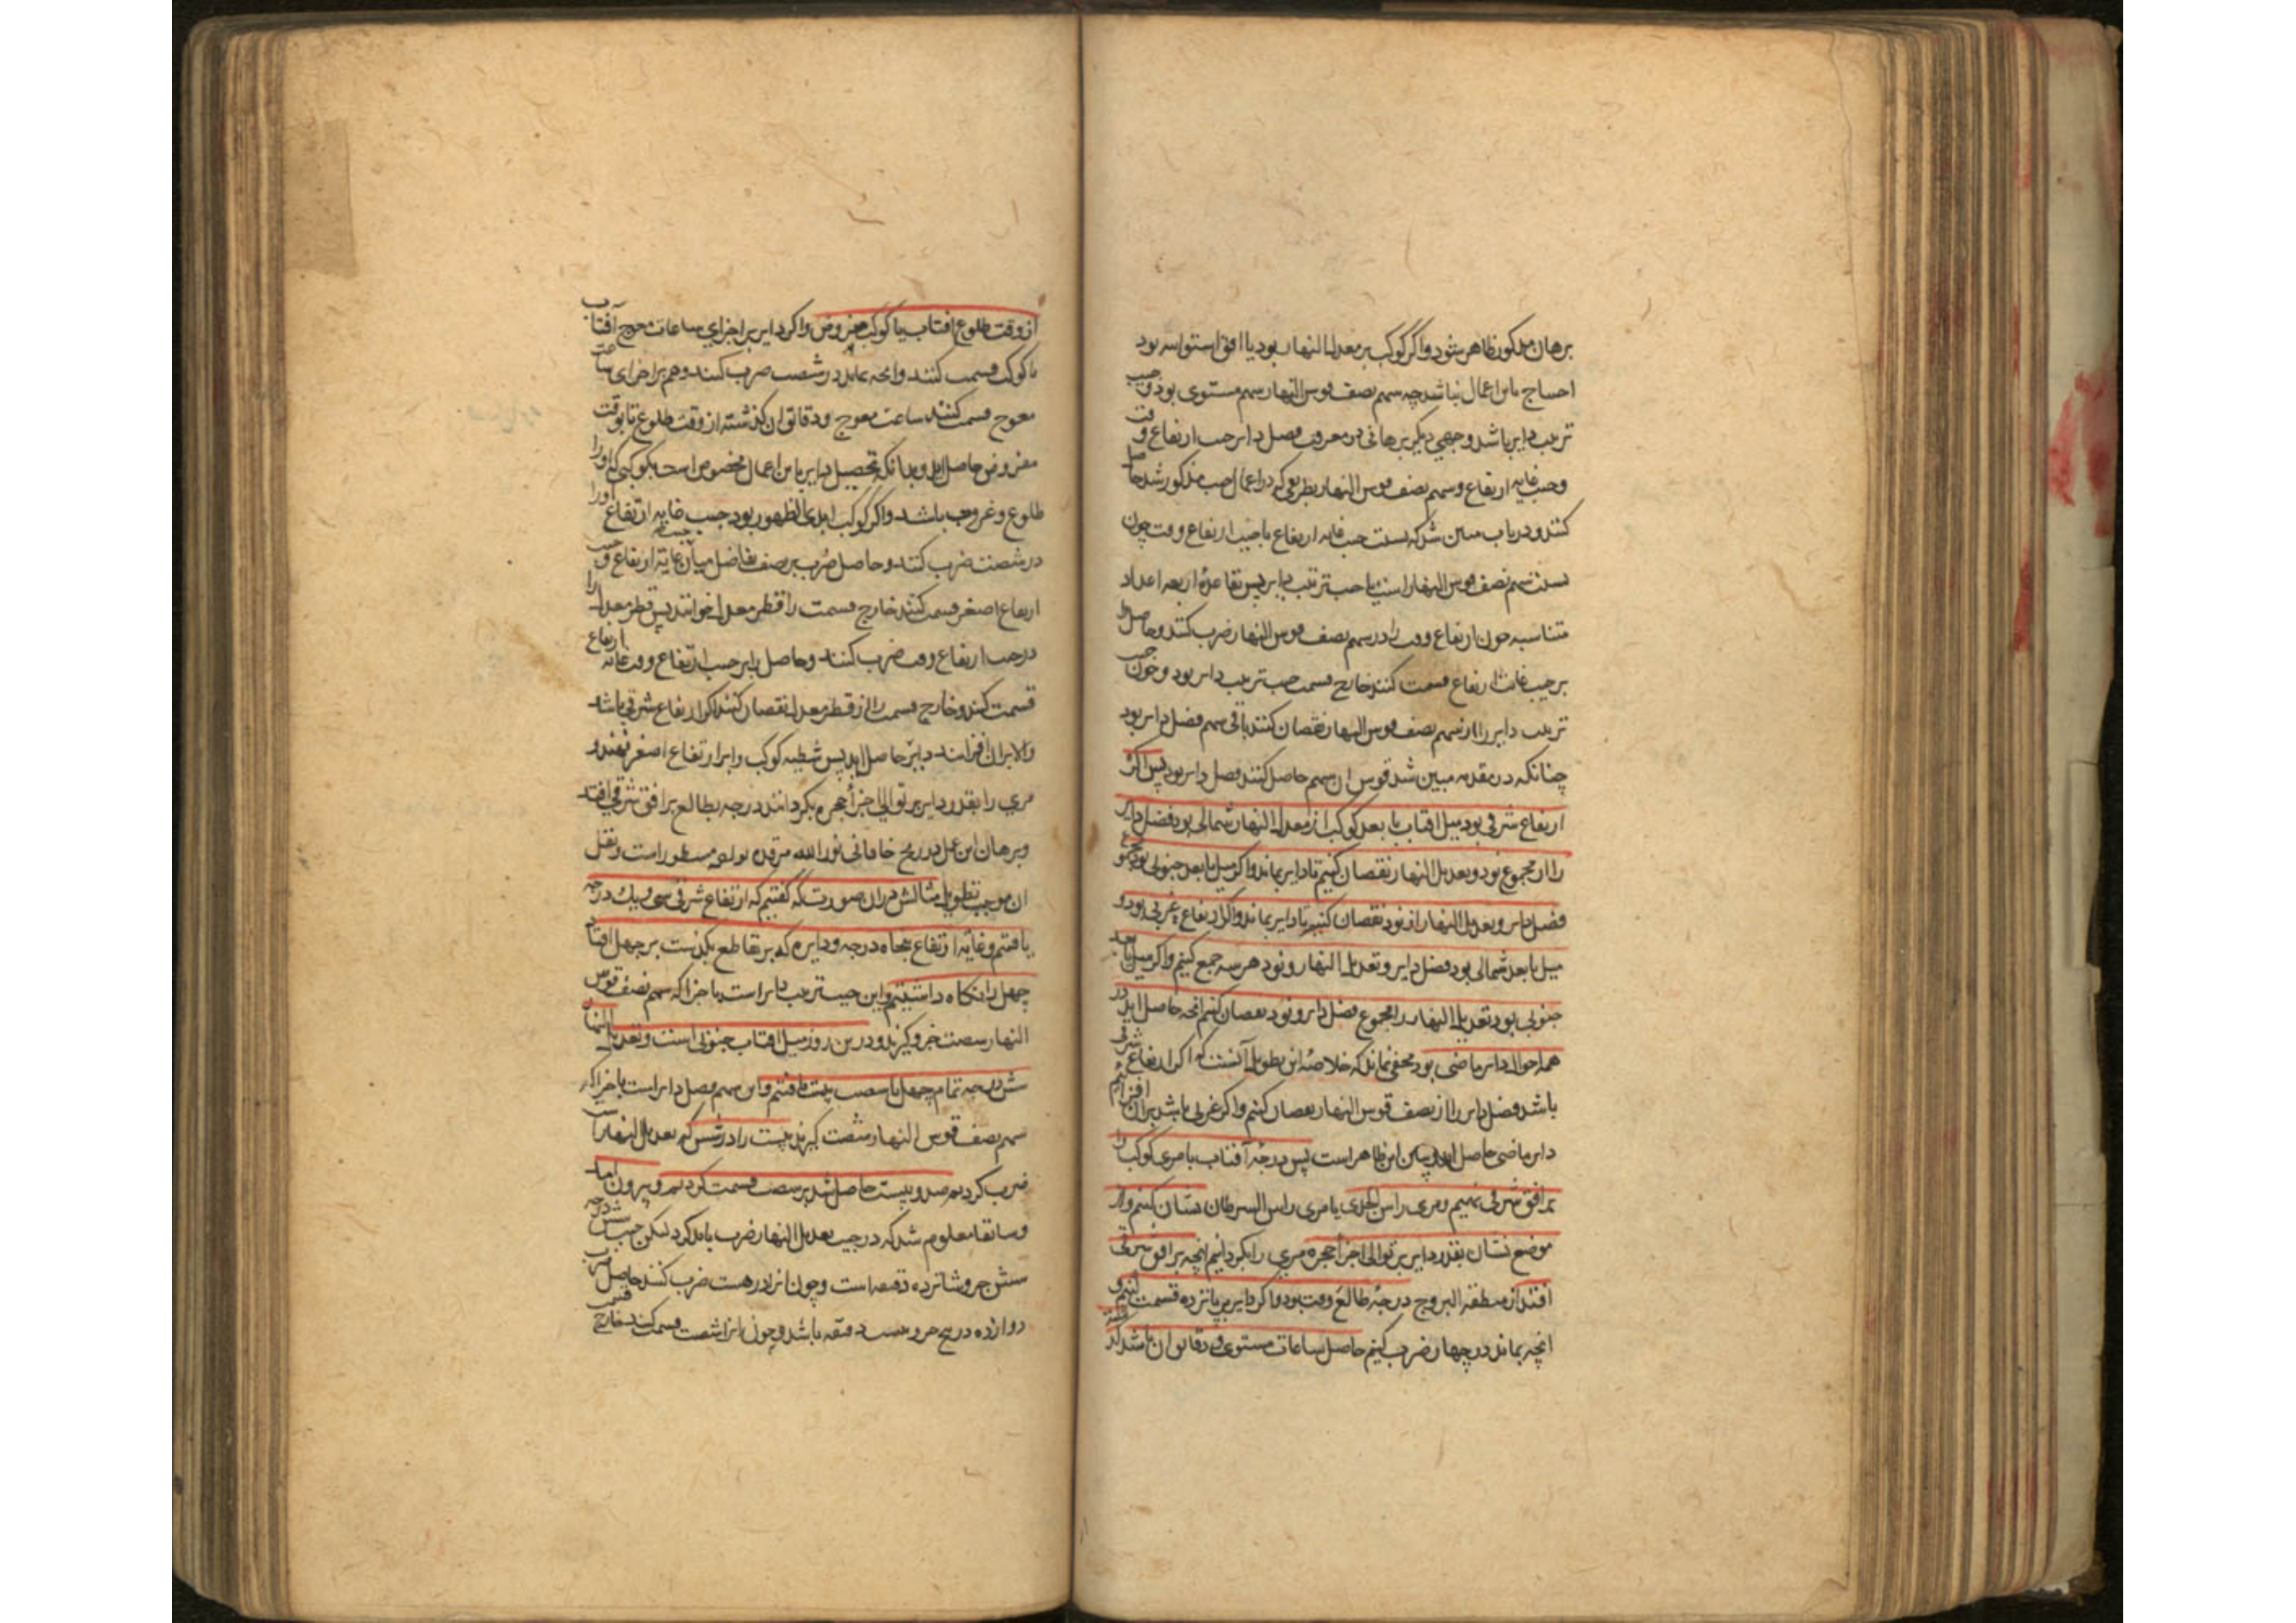 برهان مذکور ظاهر شود و اگر کوکب بر معدل النهار بود یا افق استوا سه بود
احتیاج باین اعمال نباشد چه سهم نصف قوس النهار سهم مستوی بود و جیب
ترتیب دایر باشد وجهی دیگر برهانی در معرفت فضل دایر جیب ارتفاع وقت
و جیب غایه ارتفاع و سهم نصف قوس النهار بطریقی که در اعمال جیب مذکور شد حاصل
کنند و در باب مبین شد که نسبت جیب غایه ارتفاع با جیب ارتفاع وقت چون
نسبت سهم نصف قوس النهار است با جیب ترتیب دایر پس بقاعدهٔ اربعه اعداد
متناسبه جون ارتفاع وقت را در سهم نصف قوس النهار ضرب کنند و حاصل را
بر جیب غایت ارتفاع قسمت کنند خارج قسمت جیب ترتیب دایر بود و جون جیب
ترتیب دایر را از سهم نصف قوس النهار نقصان کنند باقی سهم فضل دایر بود
چنانکه در مقدمه مبین شد قوس ان سهم حاصل کنند فضل دایر بود پس اگر
ارتفاع شرقی بود میل افتاب یا بعد کوکب از معدل النهار شمالی بود فضل دایر
را از مجموع نود و تعدیل النهار نقصان کنیم تا دایر بماند و اگر میل یا بعد جنوبی بود مجموع
فضل دایر و تعدیل النهار از نود نقصان کنیم تا دایر بماند و اگر ارتفاع غربی بود و
میل یا بعد شمالی بود فضل دایر و تعدیل النهار و نود هر سه جمع کنیم و اگر میل یا بعد
جنوبی بود تعدیل النهار را از مجموع فضل دایر و نود نقصان کنیم انچه حاصل اید در
همه احوال دایر ماضی بود مخفی نماند که خلاصهٔ این تطویل آنست که اکر ارتفاع شرقی
باشد فضل دایر را از نصف قوس النهار نقصان کنیم و اکر غربی باشد بران افزائیم
دایر ماضی حاصل اید و بیان این ظاهر است پس درجهٔ آفتاب یا مری کوکب را
بر افق شرقی نهیم و مری راس الجدی یا مری راس السرطان نشان کنیم و از
موضع نشان بقدر دایر بر توالی اجزا حجره مری را بگردانیم انچه بر افق شرقی
افتد از منطقه البروج درجهٔ طالع وقت بود و اگر دایر بر پانزده قسمت کنیم و
انچه بماند در چهار ضرب کنیم حاصل ساعات مستوی و دقائق ان باشد
از وقت طلوع افتاب یا کوکب مفروض و اکر دایر بر اجزای ساعات معوج آفتاب
یا کوکب قسمت کنند و انچه بماند در شصت ضرب کنند و هم بر اجزای ساعت
معوج قسمت کنند ساعت معوج و دقائق ان گذشته از وقت طلوع تا بوقت
مفروض حاصل اید و بدانکه تحصیل دایر باین اعمال مخصوص است بکوکبی که او را
طلوع و غروب باشد و اکر کوکب ابدی الظهور بود جیب غایه ارتفاع او را
در شصت ضرب کنند و حاصل ضرب بر نصف تفاضل میان جیب غایة ارتفاع و جیب
ارتفاع اصغر قسمت کنند خارج قسمت را قطر معدل خوانند پس قطر معدل را
در جیب ارتفاع وقت ضرب کنند و حاصل را بر جیب ارتفاع وقت غایه ارتفاع
قسمت کنند و خارج قسمت را از قطر معدل نقصان کنند اگر ارتفاع شرقی باشد
والا بران افزایند دایر حاصل اید پس شظیه کوکب را بر ارتفاع اصغر نهند و
مری را بقدر دایر بر توالی اجزاء حجره بگردانند درجه طالع بر افق شرقی افتد
و برهان این عمل در زیج خاقانی نور الله مرقده مسطور است و نقل
ان موجب تطویل مثالش دران صورت که گفتیم که ارتفاع شرقی سی و یک درجه
یافتیم و غایه ارتفاع پنجاه درجه و دایره که بر تقاطع بگذشت بر چهل افتاد
چهل را نگاه داشتیم و این جیب ترتیب دایر است باجزا که سهم نصف قوس
النهار شصت جزو گیرند و درین روز میل افتاب جنوبی است و تعدیل النهار
شش درجه تمام چهل تا شصت بیست یافتیم و این سهم فضل دایر است باجزا که
سهم نصف قوس النهار شصت گیرند بیست را در شش که تعدیل النهار است
ضرب کردیم صد و بیست حاصل شد بر شصت قسمت کردیم دو بیرون امد
و سابقا معلوم شد که در جیب تعدیل النهار ضرب باید کرد لیکن جیب شش درجه
شش جزو شانزده دقیقه است و چون انرا در بیست ضرب کنند حاصل ضرب
دوازده درج جزو بیست دقیقه باشد و چون بر شصت قسمت کنند خارج قسمت